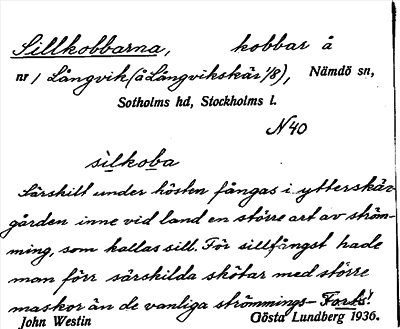 Sillkobbarna, kobbar å
nr 1 Långvik (å Långvikskär 1/8), Nämdö sn,
Sotholms hd, Stockholms l.
N 40
silkoba
Särskilt under hösten fångas i ytterskär-
gården inne vid land en större art av ström-
ming, som kallas sill. För sillfångst hade
man förr särskilda skötar med större
maskor än de vanliga strömmings- Forts!
John Westin Gösta Lundberg 1936.